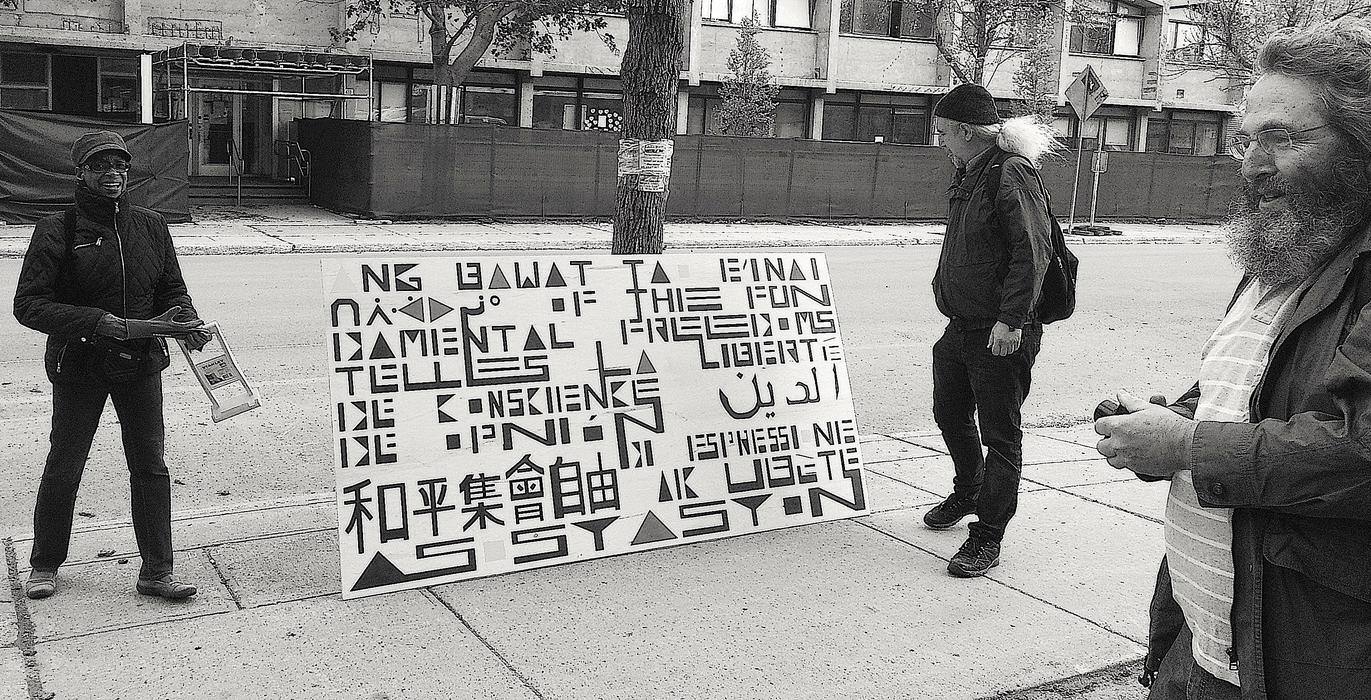 ANG BAWAT TAO E'INAI
OF THE FUN
DAMENTAL FREEDOMS
TELLES LA LIBERTÉ
DE CONSCIENCE الدين
DE OPINIÓN DI ESPRESSIONE
和平集會自由 AK LIBÈTE
ASOSYASYON